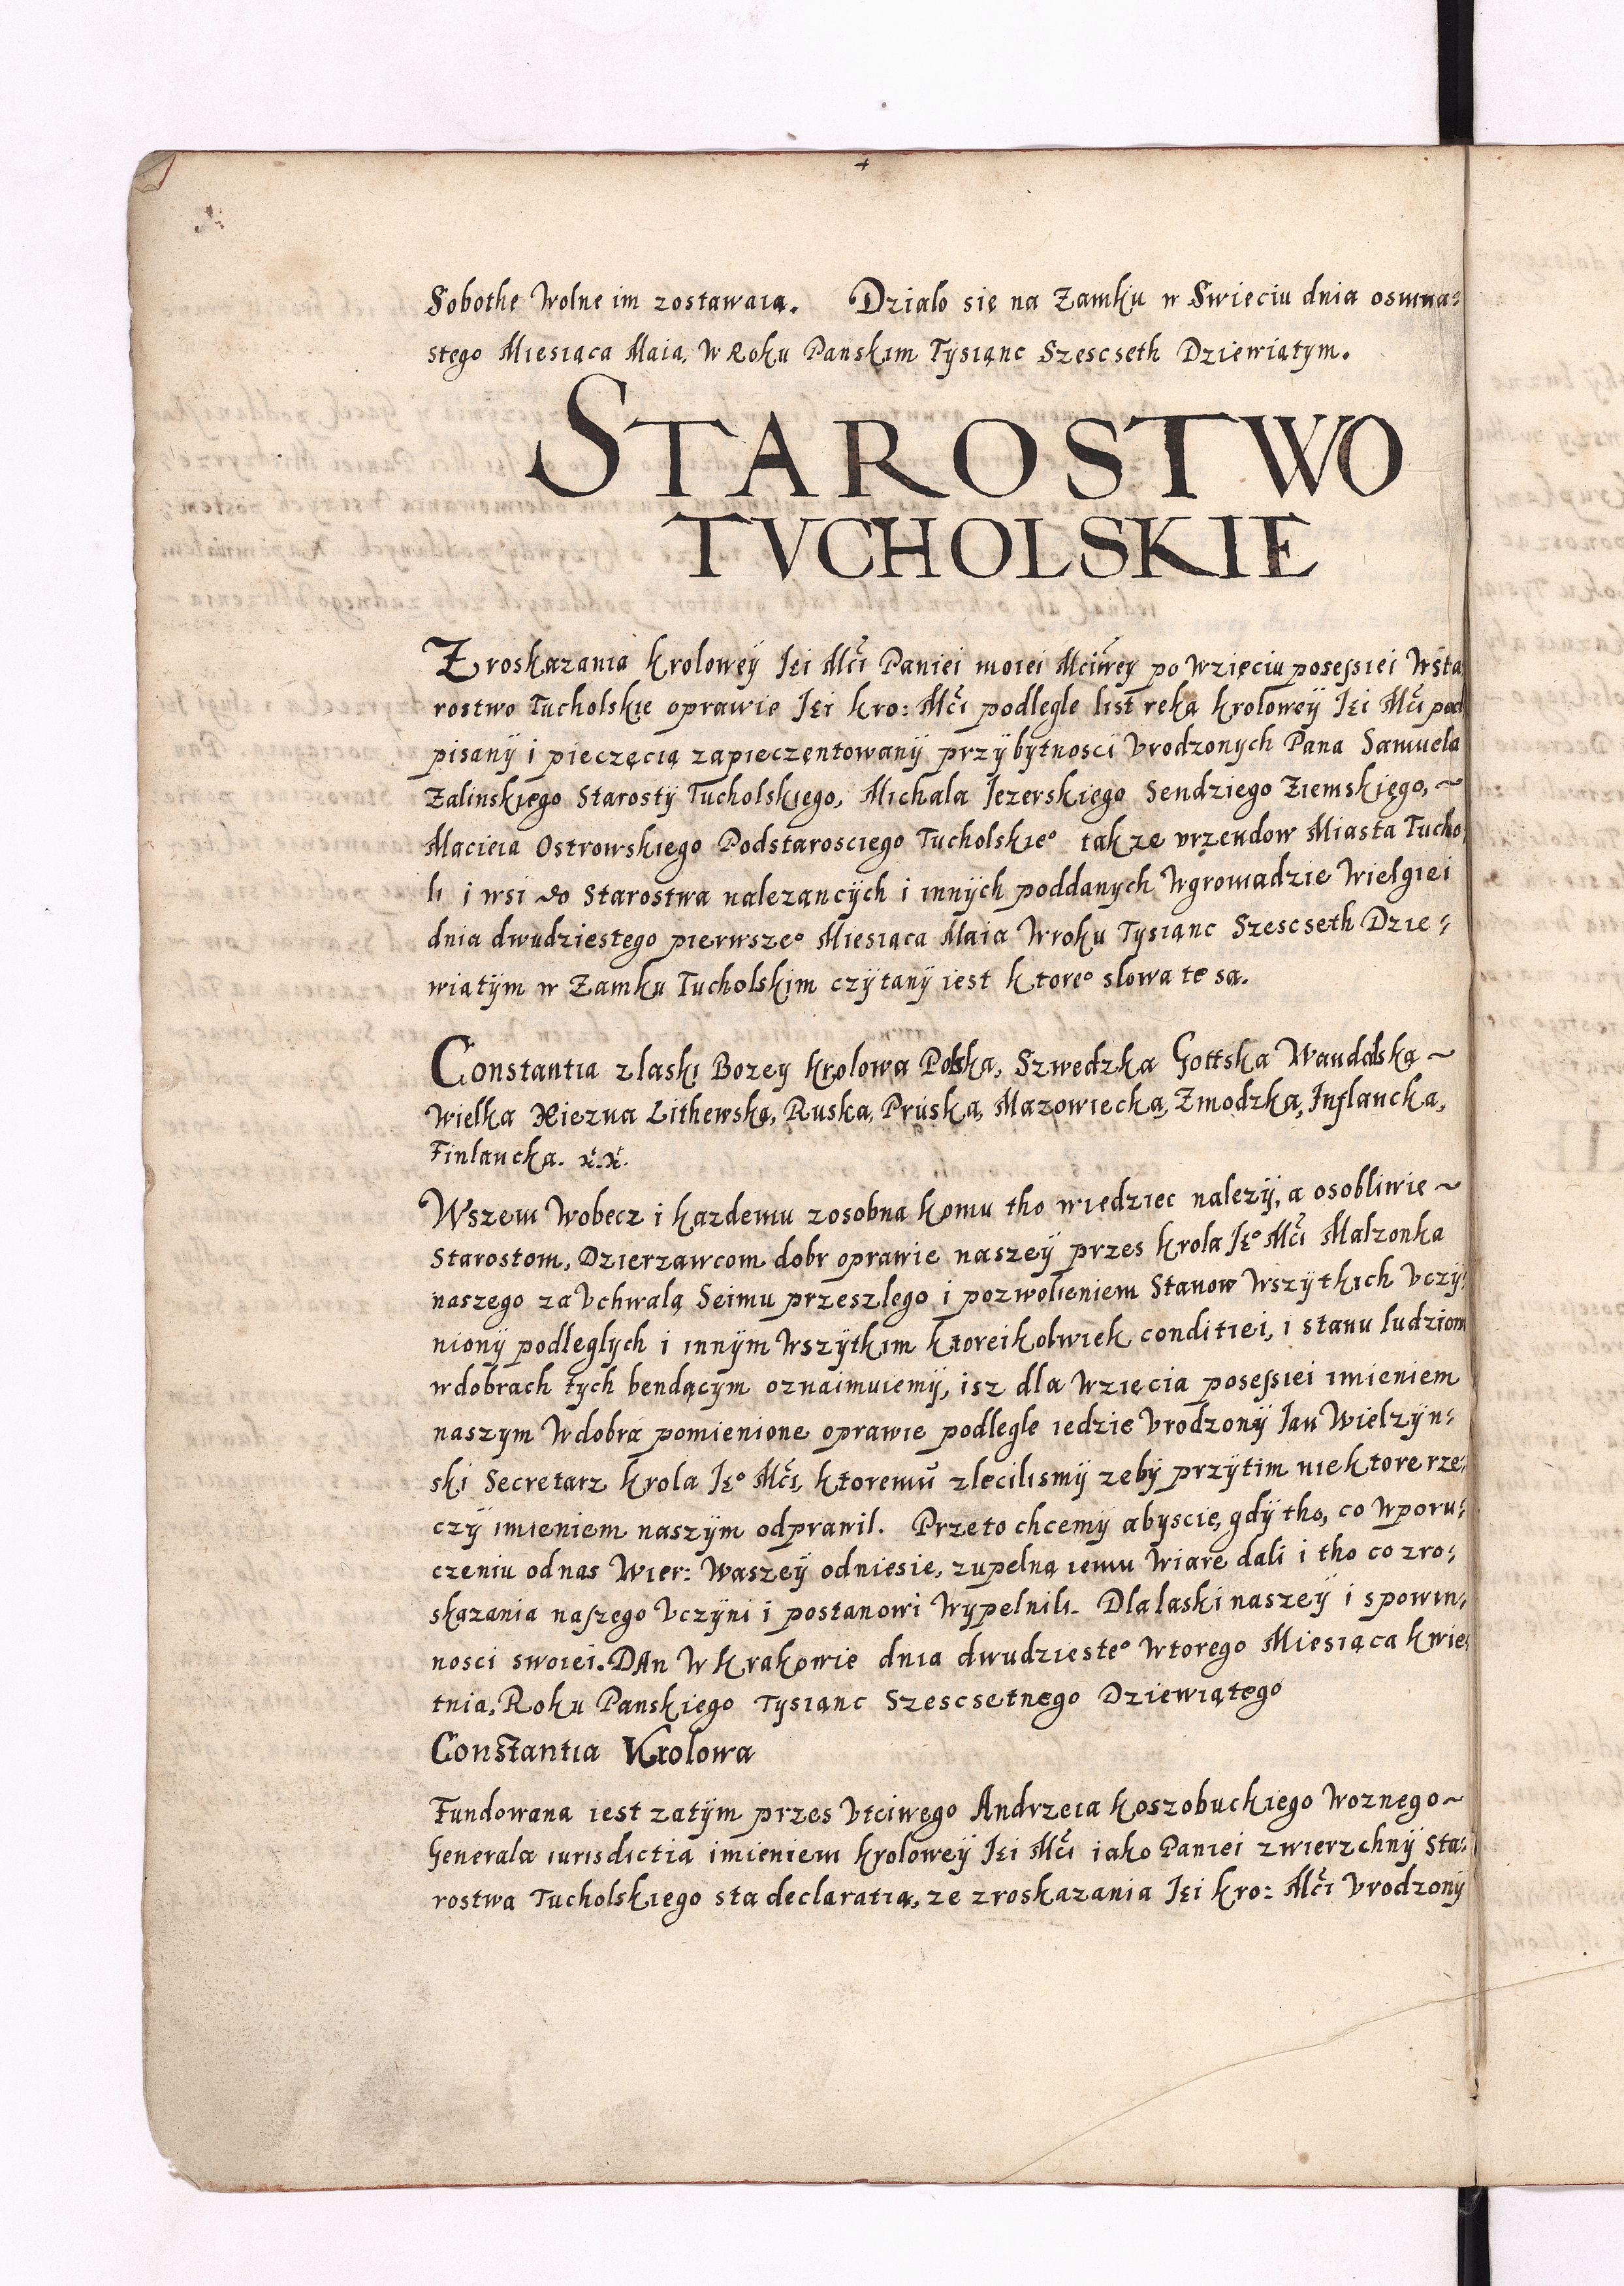 Sobothe Wolne im zostawaią. Działo się na Zamku w Swieciu dnia osmna=
stego Miesiąca Maia, W Roku Panskim Tysiąnc Szescseth Dziewiątym.
STAROSTWO
TVCHOLSKIE
Z roskazania krolowey Jęi Mći Paniei moiei Mćiwey po wzięciu posessiei W sta
rostwo Tucholskie oprawie Jęi kro: Mći podległe list ręką krolowey Jęi Mći pod
pisany i pieczęcią zapieczentowany przy bytnosci Vrodzonych Pana Samuela
Zalinskiego Starosty Tucholskiego, Michala Jezerskiego Sendziego Ziemskiego, ~
Macieia Ostrowskiego Podstarosciego Tucholskieo także vrzendow Miasta Tucho
li i wsi do Starostwa nalezancych i innych poddanych W gromadzie Wielgiei
dnia dwudziestego pierwszeo Miesiąca Maia W roku Tysiąnc Szescseth Dzie=
wiątym w Zamku Tucholskim czytany iest ktoreo słowa te są.
Constantia z laski Bozey krolowa Polska, Szwedzka Gottska Wandalska ~
Wielka Xiezna Lithewska, Ruska, Pruska, Mazowiecka, Zmodzka, Inflancka,
Finlancka. &.&.
Wszem Wobecz i kazdemu zosobna komu tho wiedziec nalezy, a osobliwie ~
Starostom, Dzierzawcom dobr oprawie naszey przes krola Jęo Mći Malzonka
naszego za Vchwalą Seimu przeszlego i pozwolieniem Stanow Wszytkich Vczy=
niony podleglych i innym Wszytkim ktoreikolwiek conditiei, i stanu ludziom
w dobrach tych bendącym oznaimuiemy, isz dla Wzięcia posessiei imieniem
naszym W dobra pomienione oprawie podlegle iedzie Vrodzony Jan Wielzyn=
ski Secretarz krola Jęo Mći, ktoremu zlecilismy zeby przytim niektore rze=
czy imieniem naszym odprawil. Przeto chcemy abyscie, gdy tho, co W poru=
czeniu od nas Wier: Waszey odniesie, zupelną iemu Wiare dali i tho co z ro=
skazania naszego Vczyni i postanowi Wypelnili. Dla laski naszey i s powin=
nosci swoiei. DAn W Krakowie dnia dwudziesteo Wtorego Miesiąca kwie=
tnia, Roku Panskiego Tysiąnc Szescsetnego Dziewiątego
Constantia Krolowa
Fundowana iest zatym przes Vtciwego Andrzeia Koszobuckiego Woznego ~
Generala iurisdictia imieniem krolowey Jęi Mći iako Paniei zwierzchny Sta=
rostwa Tucholskiego sta declaratią, ze z roskazania Jęi kro: Mći Vrodzony